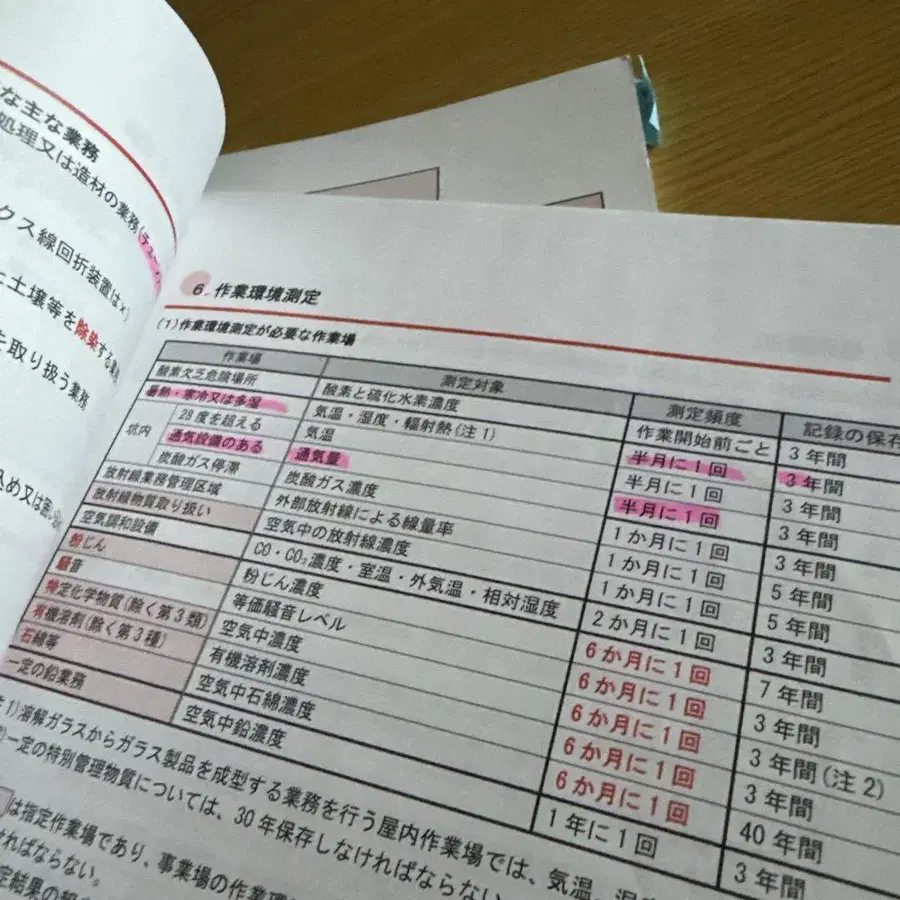 な主な業務
処理又は造材の業務(チェーン
クス線回折装置は×)
土壌等を除染する業務
を取り扱う業務
込め又は
6．作業環境測定
(1)作業環境測定が必要な作業場
作業場 測定対象 測定頻度 記録の保存
酸素欠乏危険場所 酸素と硫化水素濃度 作業開始前ごと 3年間
暑熱・寒冷又は多湿 気温・湿度・輻射熱(注1) 半月に1回 3年間
坑内 28度を超える 気温 半月に1回 3年間
通気設備のある 通気量 半月に1回 3年間
炭酸ガス停滞 炭酸ガス濃度 1か月に1回 3年間
放射線業務管理区域 外部放射線による線量率 1か月に1回 5年間
放射線物質取り扱い 空気中の放射線濃度 1か月に1回 5年間
空気調和設備 CO・CO₂濃度・室温・外気温・相対湿度 2か月に1回 3年間
粉じん 粉じん濃度 6か月に1回 7年間
騒音 等価騒音レベル 6か月に1回 3年間
特定化学物質(除く第3類) 空気中濃度 6か月に1回 3年間(注2)
有機溶剤(除く第3種) 有機溶剤濃度 6か月に1回 3年間
石綿等 空気中石綿濃度 6か月に1回 40年間
一定の鉛業務 空気中鉛濃度 1年に1回 3年間
注1)溶解ガラスからガラス製品を成型する業務を行う屋内作業場では、気温、湿度
2)一定の特別管理物質については、30年保存しなければならない
は指定作業場であり、事業場の作業環
ければならない。
定結果の